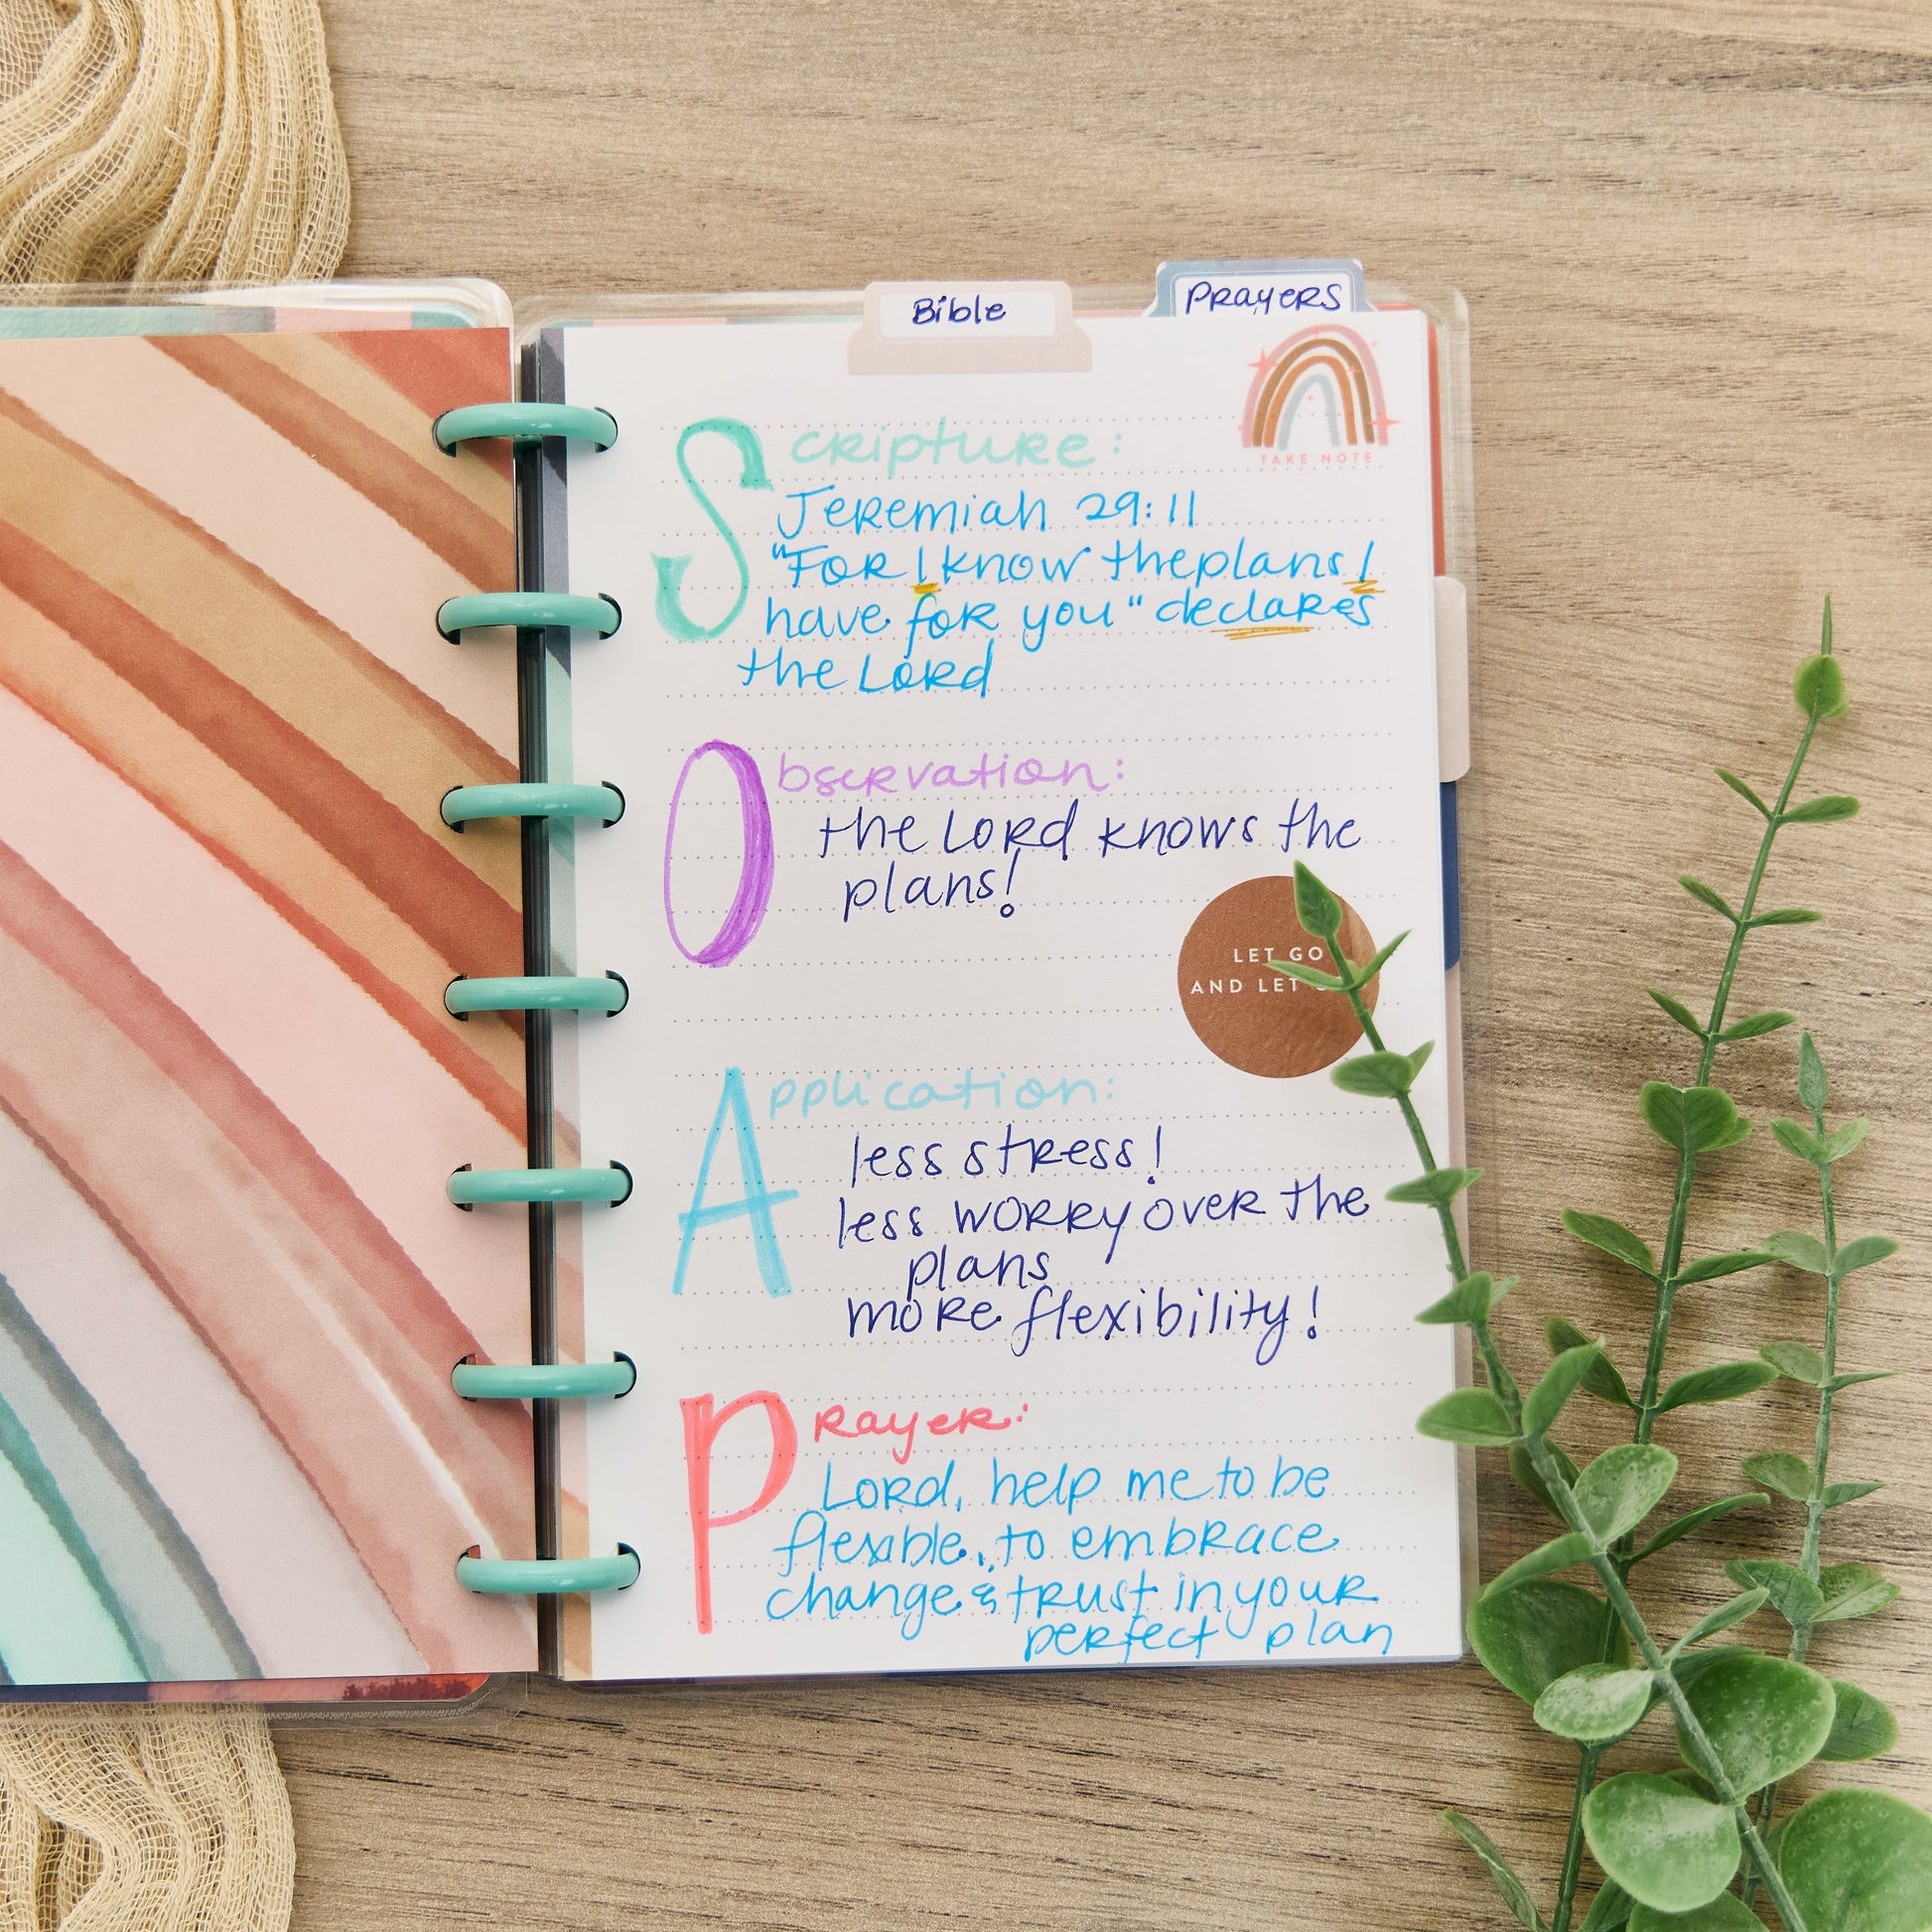 Bible
PRayERS
TAKE NOTE
Scripture:
Jeremiah 29:11
"For I know the plans I
have for you" declares
the Lord
Observation:
the Lord knows the
plans!
LET GO
AND LET
Application:
less stress!
less worry over the
plans
more flexibility!
Prayer:
Lord, help me to be
flexible, to embrace
change & trust in your
perfect plan